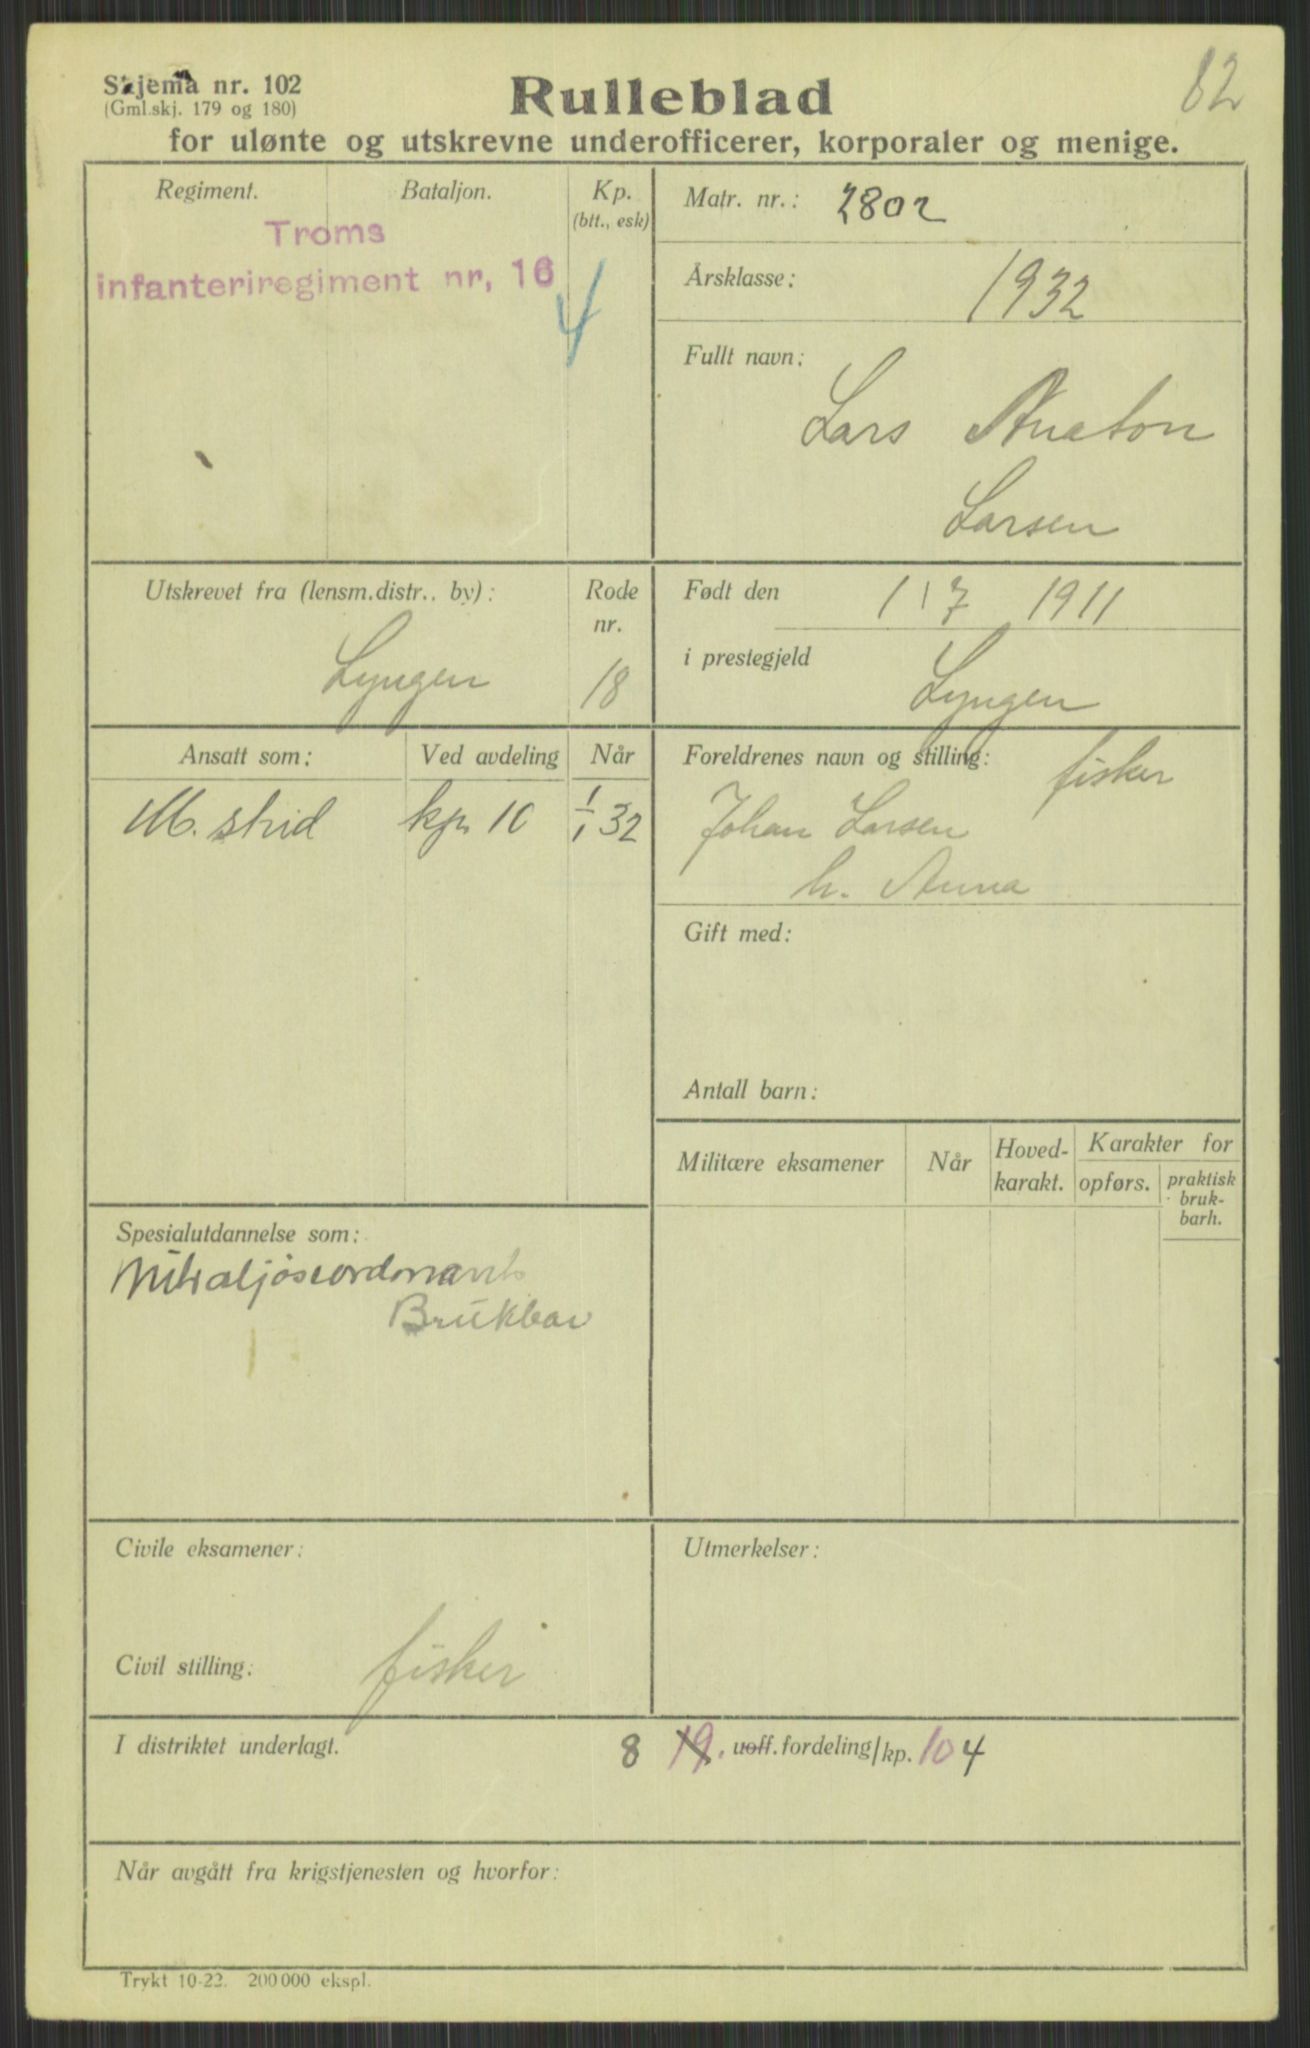 Skjema nr. 102
(Gml.skj. 179 og 180)
82
Rulleblad
for ulønte og utskrevne underofficerer, korporaler og menige.
Regiment.
Bataljon.
Kp.
(btt., esk)
Troms
infanteriregiment nr, 16
4
Matr. nr.: 2802
Årsklasse: 1932
Fullt navn:
Lars Anaton
Larsen
Utskrevet fra (lensm.distr., by):
Lyngen
Rode
nr.
18
Født den 1/7 1911
i prestegjeld Lyngen
Ansatt som:
Ved avdeling
Når
M. strid
kp. 10
1/1 32
Foreldrenes navn og stilling: fisker
Johan Larsen
h. Anna
Gift med:
Antall barn:
Militære eksamener
Når
Hoved-
karakt.
Karakter for
opførs.
praktisk
bruk-
barh.
Spesialutdannelse som:
Mitraljøseordonnans
Brukbar
Civile eksamener:
Civil stilling: fisker
Utmerkelser:
I distriktet underlagt. 8 19. uoff. fordeling/kp. 10 4
Når avgått fra krigstjenesten og hvorfor:
Trykt 10-22. 200 000 ekspl.